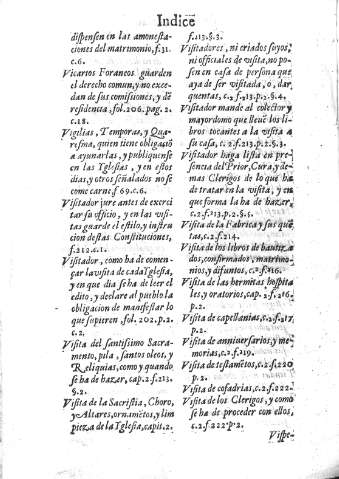 Indice
dispensen en las amonesta-
ciones del matrimonio, f.31.
c.6.
Vicarios Foraneos guarden
el derecho comun, y no exce-
dan de sus comisiones, y de
residencia, fol. 206. pag. 2.
c.18.
Vigilias, Temporas, y Qua-
resma, quien tiene obligaciō
a ayunarlas, y publiquense
en las Yglesias, y en estos
dias, y otros señalados no se
come carne, f. 69. c.6.
Visitador jure antes de exerci-
tar su oficio, y en las visi-
tas guarde el estilo, y instru
cion destas Constituciones,
f.212.c.1.
Visitador, como ha de comen-
çar la visita de cada Yglesia,
y en que dia se ha de leer el
edito, y declare al pueblo la
obligacion de manifestar lo
que supieren, fol. 202. p.2.
c.2.
Visita del santissimo Sacra-
mento, pila, santos oleos, y
Reliquias, como y quando
se ha de hazer, cap.2.f.213.
§.2.
Visita de la Sacristia, Choro,
y Altares, ornamētos, y lim
pieza de la Yglesia, capit. 2.
f.213.§.3.
Visitadores, ni criados suyos,
ni officiales de visita, no po-
sen en casa de persona que
aya de ser visitada, o, dar
quentas, c.2.f.213.p.2.§.4.
Visitador mande al colector y
mayordomo que lleue los li-
bros tocantes a la visita a
su casa, c.2.f.213.p.2.§.3.
Visitador haga lista en pre-
sencia del Prior, Cura, y de-
mas Clerigos de lo que ha
de tratar en la visita, y en
que forma la ha de hazer,
c.2.f.213.p.2.§.5.
Visita de la Fabrica y sus quē
tas, c.2.f.214.
Visita de los libros de bautiza-
dos, confirmados, matrimo-
nios, y difuntos, c.2.f.216.
Visita de las hermitas hospita
les, y oratorios, cap.2.f.216.
p.2.
Visita de capellanias, c.2.f.217
p.2.
Visita de anniuersarios, y me-
morias, c.2.f.219.
Visita de testamētos, c.2.f.220
p.2.
Visita de cofadrias, c.2.f.222.
Visita de los Clerigos, y como
se ha de proceder con ellos,
c.2.f.222.p.2.
Vispe-